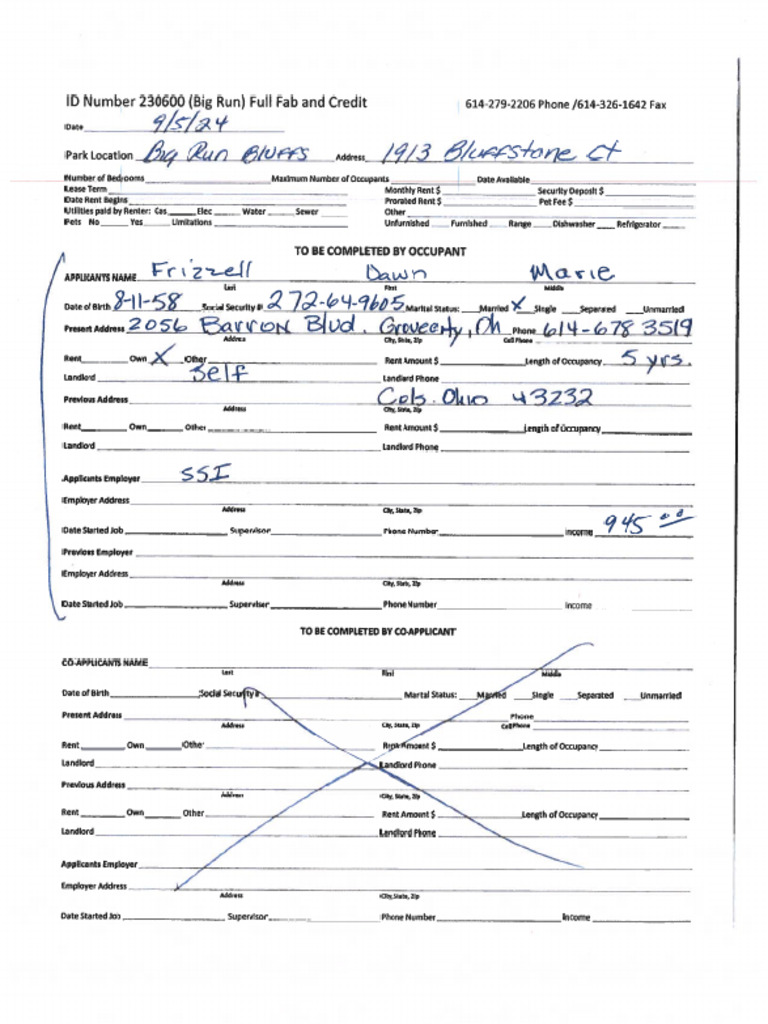 ID Number 230600 (Big Run) Full Fab and Credit 614-279-2206 Phone /614-326-1642 Fax
Date 9/5/24
Park Location Big Run Bluffs Address 1913 Bluffstone Ct
Number of Bedrooms Maximum Number of Occupants Date Available
Lease Term Monthly Rent $ Security Deposit $
Date Rent Begins Prorated Rent $ Pet Fee $
Utilities paid by Renter: Gas Elec Water Sewer Other
Pets No Yes Limitations Unfurnished Furnished Range Dishwasher Refrigerator
TO BE COMPLETED BY OCCUPANT
APPLICANTS NAME Frizzell Dawn Marie
Last First Middle
Date of Birth 8-11-58 Social Security # 272-64-9605 Marital Status: Married X Single Seperated Unmarried
Present Address 2056 Barron Blvd. Grovecity, Oh Phone 614-678 3519
Address City, State, Zip Cell Phone
Rent Own X Other Rent Amount $ Length of Occupancy 5 yrs.
Landlord Self Landlord Phone
Previous Address Cols. Ohio 43232
Address City, State, Zip
Rent Own Other Rent Amount $ Length of Occupancy
Landlord Landlord Phone
Applicants Employer SSI
Employer Address
Address City, State, Zip
Date Started Job Supervisor Phone Number Income 945 00
Previous Employer
Employer Address
Address City, State, Zip
Date Started Job Superviser Phone Number Income
TO BE COMPLETED BY CO-APPLICANT
CO-APPLICANTS NAME
Last First Middle
Date of Birth Social Security # Martal Status: Married Single Separated Unmarried
Present Address Phone
Address City, State, Zip Cell Phone
Rent Own Other Rent Amount $ Length of Occupancy
Landlord Landlord Phone
Previous Address
Address City, State, Zip
Rent Own Other Rent Amount $ Length of Occupancy
Landlord Landlord Phone
Applicants Employer
Employer Address
Address City, State, Zip
Date Started Job Supervisor Phone Number Income